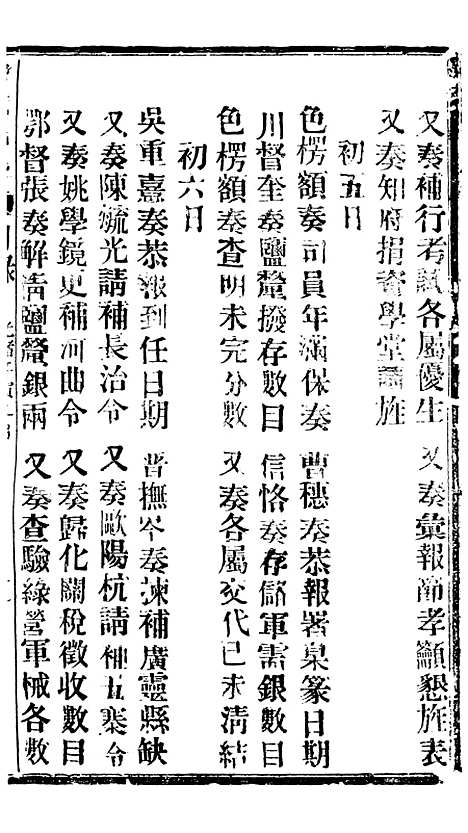 又奏補行考試各屬優生　又奏彙報節孝籲懇旌表
又奏知府捐資學堂請旌
初五日
色楞額奏司員年滿保奏　曹穗奏恭報署臬篆日期
川督奎奏鹽釐撥存數目　信恪奏存儲軍需銀數目
色楞額奏查明未完分數　又奏各屬交代已未清結
初六日
吳重憙奏恭報到任日期　晋撫岑奏揀補廣靈縣缺
又奏陳毓光請補長治令　又奏歐陽杭請補五寨令
又奏姚學鏡更補河曲令　又奏歸化關稅徵收數目
鄂督張奏解清鹽釐銀兩　又奏查驗綠營軍械各數